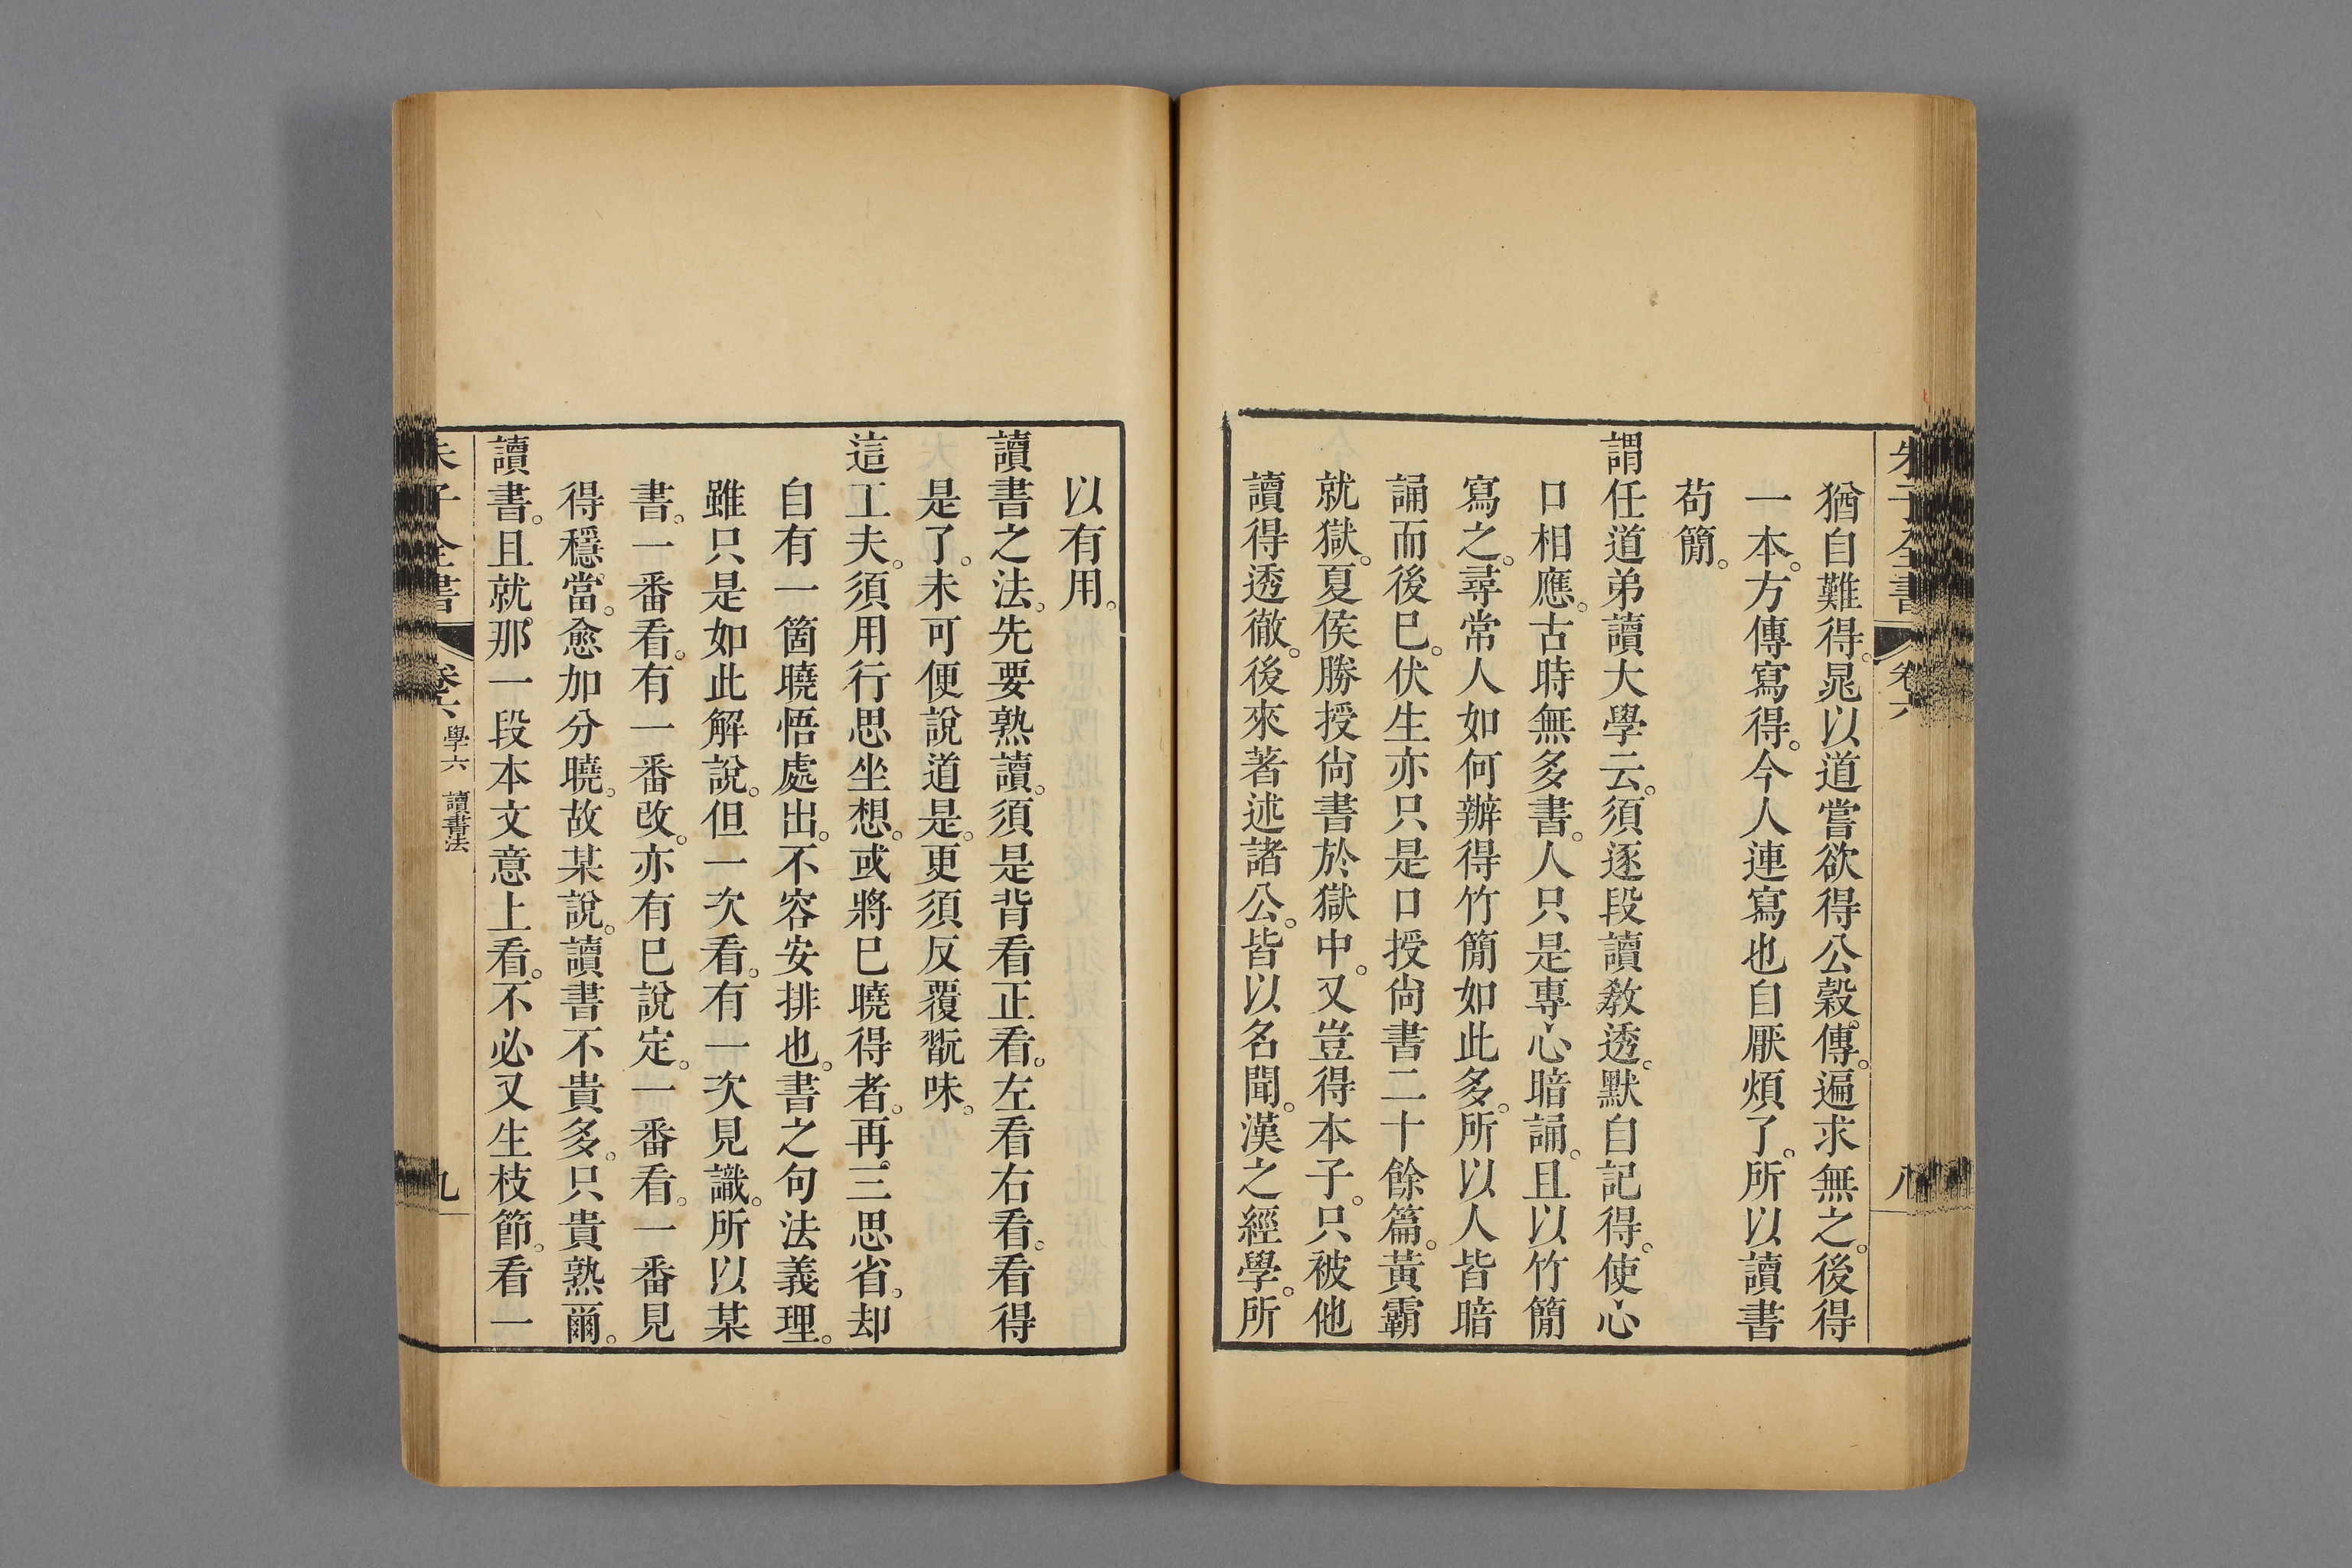 朱子全書 卷六 八
猶自難得。晁以道嘗欲得公穀傳。遍求無之。後得
一本。方傳寫得。今人連寫也自厭煩了。所以讀書
苟簡。
謂任道弟讀大學云。須逐段讀敎透。默自記得。使心
口相應。古時無多書。人只是專心暗誦。且以竹簡
寫之。尋常人如何辦得竹簡如此多。所以人皆暗
誦而後已。伏生亦只是口授尙書二十餘篇。黃霸
就獄。夏侯勝授尙書於獄中。又豈得本子。只被他
讀得透徹。後來著述諸公。皆以名聞。漢之經學。所
以有用。
讀書之法。先要熟讀。須是背看正看。左看右看。看得
是了。未可便說道是。更須反覆翫味。
這工夫。須用行思坐想。或將已曉得者。再三思省。却
自有一箇曉悟處出。不容安排也。書之句法義理。
雖只是如此解說。但一次看。有一次見識。所以某
書。一番看。有一番改。亦有已說定。一番看。一番見
得穩當。愈加分曉。故某說。讀書不貴多。只貴熟爾。
讀書。且就那一段本文意上看。不必又生枝節。看一
朱子全書 卷六 學六 讀書法 九